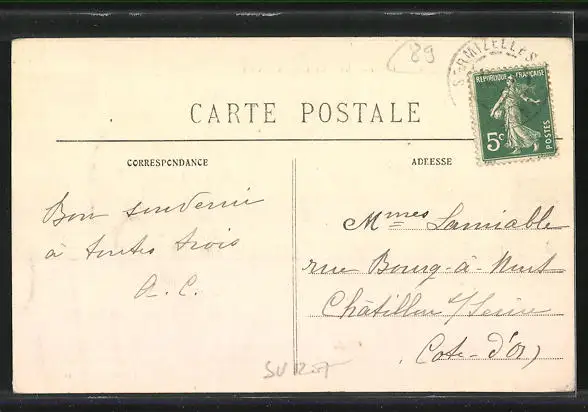 89
SERMIZELLES
REPUBLIQUE FRANÇAISE
5c
POSTES
CARTE POSTALE
CORRESPONDANCE
ADRESSE
Bon souvenir
à toutes trois
A. C.
Mmes Lamiable
rue Bourg-à-Mont
Châtillon s/ Seine
(Cote-d'Or)